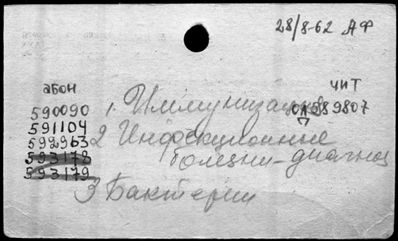 28/8-62 АФ
абон чит
590090 1. Иммунизация 589807
591104
592963 2 Инфекционные
593178 болезни-диагноз
593179
3 Бактерии